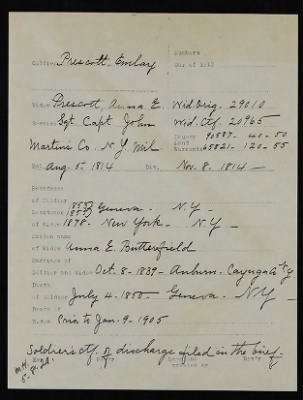 Soldier Prescott, Embay
Numbers
War of 1812
Widow Prescott, Anna E. Wid. Orig. 29010
Service Sgt Capt John Wid. Ctf. 20965
Martin's Co. N.Y. Mil
Bounty Land Warrants 90587-40-50
65821-120-55
Enl. Aug. 5-1814 Dis. Nov. 8. 1814-
Residence
of Soldier 1853 Geneva - N.Y. -
Residence 1857
of Widow 1878- New York. N.Y -
Maiden name
of Widow Anna E. Butterfield
Marriage of
Soldier and Widow Oct. 8-1839- Auburn- Cayuga Co N.Y
Death
of Soldier July 4-1855- Geneva. N.Y-
Death of
Widow Prior to Jan. 9-1905
Soldier's ctf. of discharge filed in the brief.